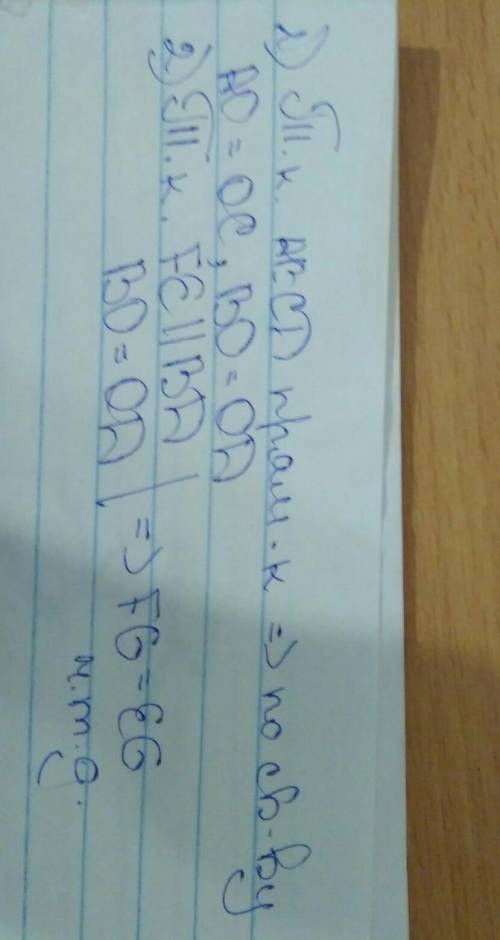 1) Т.к. ABCD прям-к => по св-ву
AO = OC, BO = OD
2) Т.к. FE || BD
BO = OD | => FG = EG
ч.т.д.